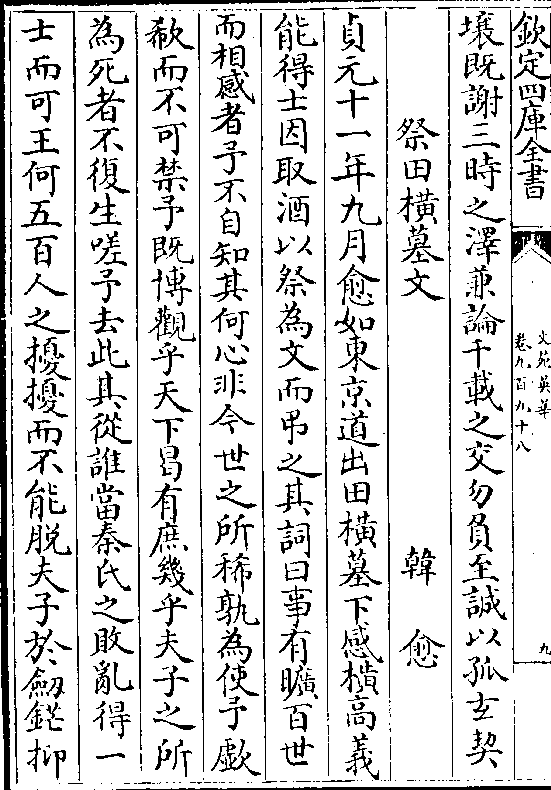 欽定四庫全書
文苑英華
卷九百九十八
九
壌既謝三時之澤兼論千載之交勿負至誠以孤玄契
祭田橫墓文 韓愈
貞元十一年九月愈如東京道出田橫墓下感橫高義
能得士因取酒以祭為文而弔之其詞曰事有曠百世
而相感者予不自知其何心非今世之所稀孰為使予歔
欷而不可禁予既博觀乎天下曷有庶幾乎夫子之所
為死者不復生嗟予去此其從誰當秦氏之敗亂得一
士而可王何五百人之擾擾而不能脱夫子於劔鋩抑